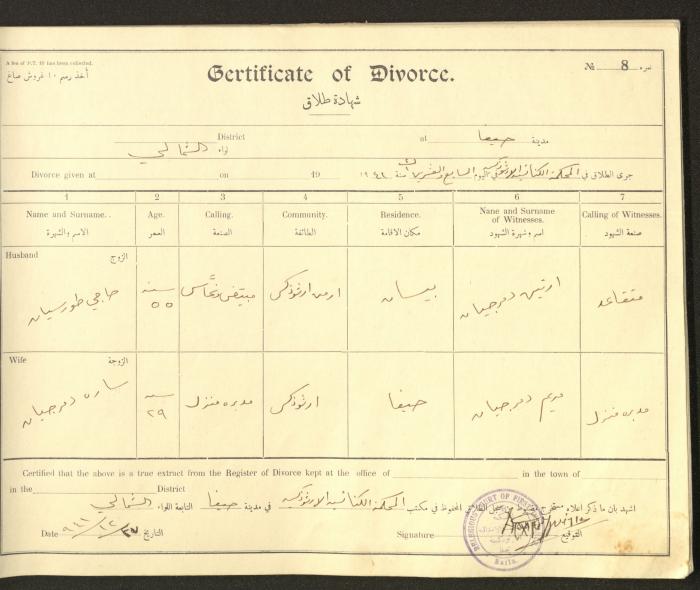 A fee of P.T. 10 has been collected.
أخذ رسم ١٠ غروش صاغ
Certificate of Divorce.
No 8 نمره
شهادة طلاق
District at حيفا مدينة
الشمالي لواء
Divorce given at on 19 ١٩٤١ سنة
جرى الطلاق في المحكمة الكنائسية الارثوذكسية في اليوم السابع والعشرين
1 2 3 4 5 6 7
Name and Surname. Age. Calling. Community. Residence. Name and Surname of Witnesses. Calling of Witnesses.
الاسم والشهرة العمر الصنعة الطائفة مكان الاقامة اسم وشهرة الشهود صنعة الشهود
Husband الزوج
حاجي طورسيان سنة ٥٥ مبيض نحاس ارمن ارثوذكس بيسان ارتين دمرجيان متقاعد
Wife الزوجة
ساره دمرجيان سنة ٢٩ مدبرة منزل ارثوذكس حيفا مريم دمرجيان مدبرة منزل
Certified that the above is a true extract from the Register of Divorce kept at the office of in the town of
in the District
اشهد بان ما ذكر اعلاه مستخرج من سجل الطلاق المحفوظ في مكتب المحكمة الكنائسية الارثوذكسية في مدينة حيفا التابعة للواء الشمالي
Date ٢٧/١٢/٩٤١ التاريخ Signature التوقيع
RELIGIOUS COURT OF FIRST
Haifa